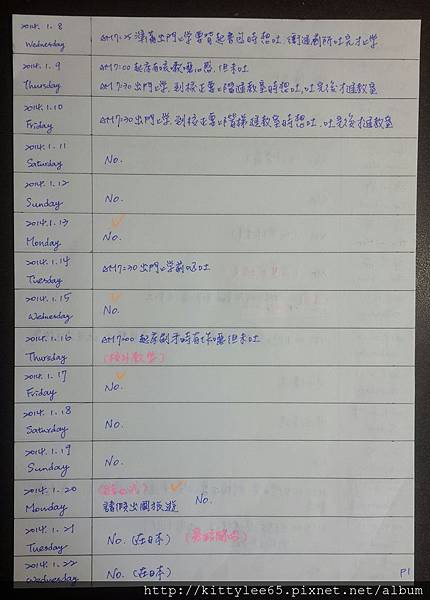 2014. 1. 8
Wednesday
AM7:25 準備出門上學要背起書包時想吐.衝進廁所吐完才上學
2014. 1. 9
Thursday
AM7:00 起床 但未吐
AM7:30 出門上學.到校正要上 進教室時想吐.吐完後才進教室
2014. 1. 10
Friday
AM7:30 出門上學.到校正要上 進教室時想吐.吐完後才進教室
2014. 1. 11
Saturday
No.
2014. 1. 12
Sunday
No.
2014. 1. 13
Monday
No.
2014. 1. 14
Tuesday
AM7:30 出門上學前 吐
2014. 1. 15
Wednesday
No.
2014. 1. 16
Thursday
AM7:00 起床刷牙時有作嘔.但未吐
(校外教學)
2014. 1. 17
Friday
No.
2014. 1. 18
Saturday
No.
2014. 1. 19
Sunday
No.
2014. 1. 20
Monday
請假出國旅遊 No.
2014. 1. 21
Tuesday
No. (在日本)
2014. 1. 22
Wednesday
No. (在日本)
P1
http://kittylee65.pixnet.net/album